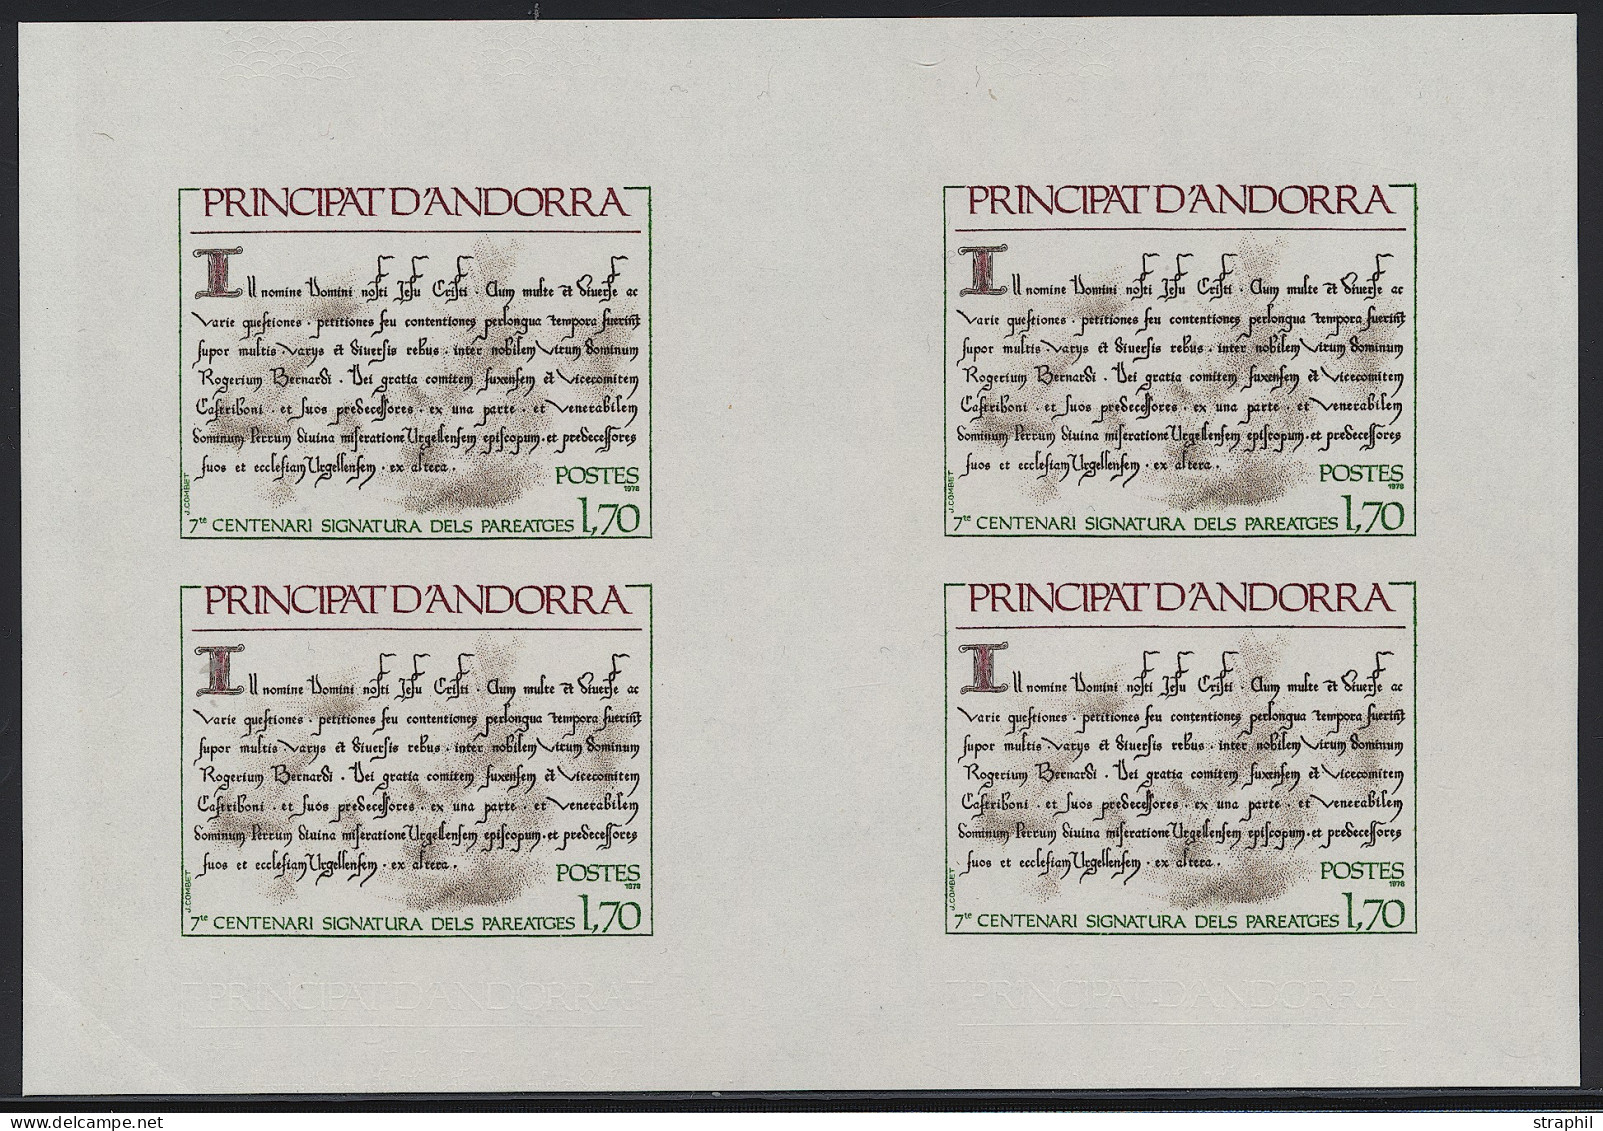 PRINCIPAT D'ANDORRA
In nomine Domini nostri Jesu Cristi · Cum multe et diverse ac
varie questiones · petitiones seu contentiones perlongua tempora fuerint
supor multis · varys et diversis rebus · inter nobilem virum dominum
Rogerium Bernardi · Dei gratia comitem fuxensem et vicecomitem
Castriboni · et suos predecessores · ex una parte · et venerabilem
dominum Petrum divina miseratione Urgellensem episcopum · et predecessores
suos et ecclesiam Urgellensem · ex altera .
POSTES
1978
J. COMBET
7te CENTENARI SIGNATURA DELS PAREATGES 1,70
PRINCIPAT D'ANDORRA
In nomine Domini nostri Jesu Cristi · Cum multe et diverse ac
varie questiones · petitiones seu contentiones perlongua tempora fuerint
supor multis · varys et diversis rebus · inter nobilem virum dominum
Rogerium Bernardi · Dei gratia comitem fuxensem et vicecomitem
Castriboni · et suos predecessores · ex una parte · et venerabilem
dominum Petrum divina miseratione Urgellensem episcopum · et predecessores
suos et ecclesiam Urgellensem · ex altera .
POSTES
1978
J. COMBET
7te CENTENARI SIGNATURA DELS PAREATGES 1,70
PRINCIPAT D'ANDORRA
In nomine Domini nostri Jesu Cristi · Cum multe et diverse ac
varie questiones · petitiones seu contentiones perlongua tempora fuerint
supor multis · varys et diversis rebus · inter nobilem virum dominum
Rogerium Bernardi · Dei gratia comitem fuxensem et vicecomitem
Castriboni · et suos predecessores · ex una parte · et venerabilem
dominum Petrum divina miseratione Urgellensem episcopum · et predecessores
suos et ecclesiam Urgellensem · ex altera .
POSTES
1978
J. COMBET
7te CENTENARI SIGNATURA DELS PAREATGES 1,70
PRINCIPAT D'ANDORRA
In nomine Domini nostri Jesu Cristi · Cum multe et diverse ac
varie questiones · petitiones seu contentiones perlongua tempora fuerint
supor multis · varys et diversis rebus · inter nobilem virum dominum
Rogerium Bernardi · Dei gratia comitem fuxensem et vicecomitem
Castriboni · et suos predecessores · ex una parte · et venerabilem
dominum Petrum divina miseratione Urgellensem episcopum · et predecessores
suos et ecclesiam Urgellensem · ex altera .
POSTES
1978
J. COMBET
7te CENTENARI SIGNATURA DELS PAREATGES 1,70
PRINCIPAT D'ANDORRA
PRINCIPAT D'ANDORRA
straphil